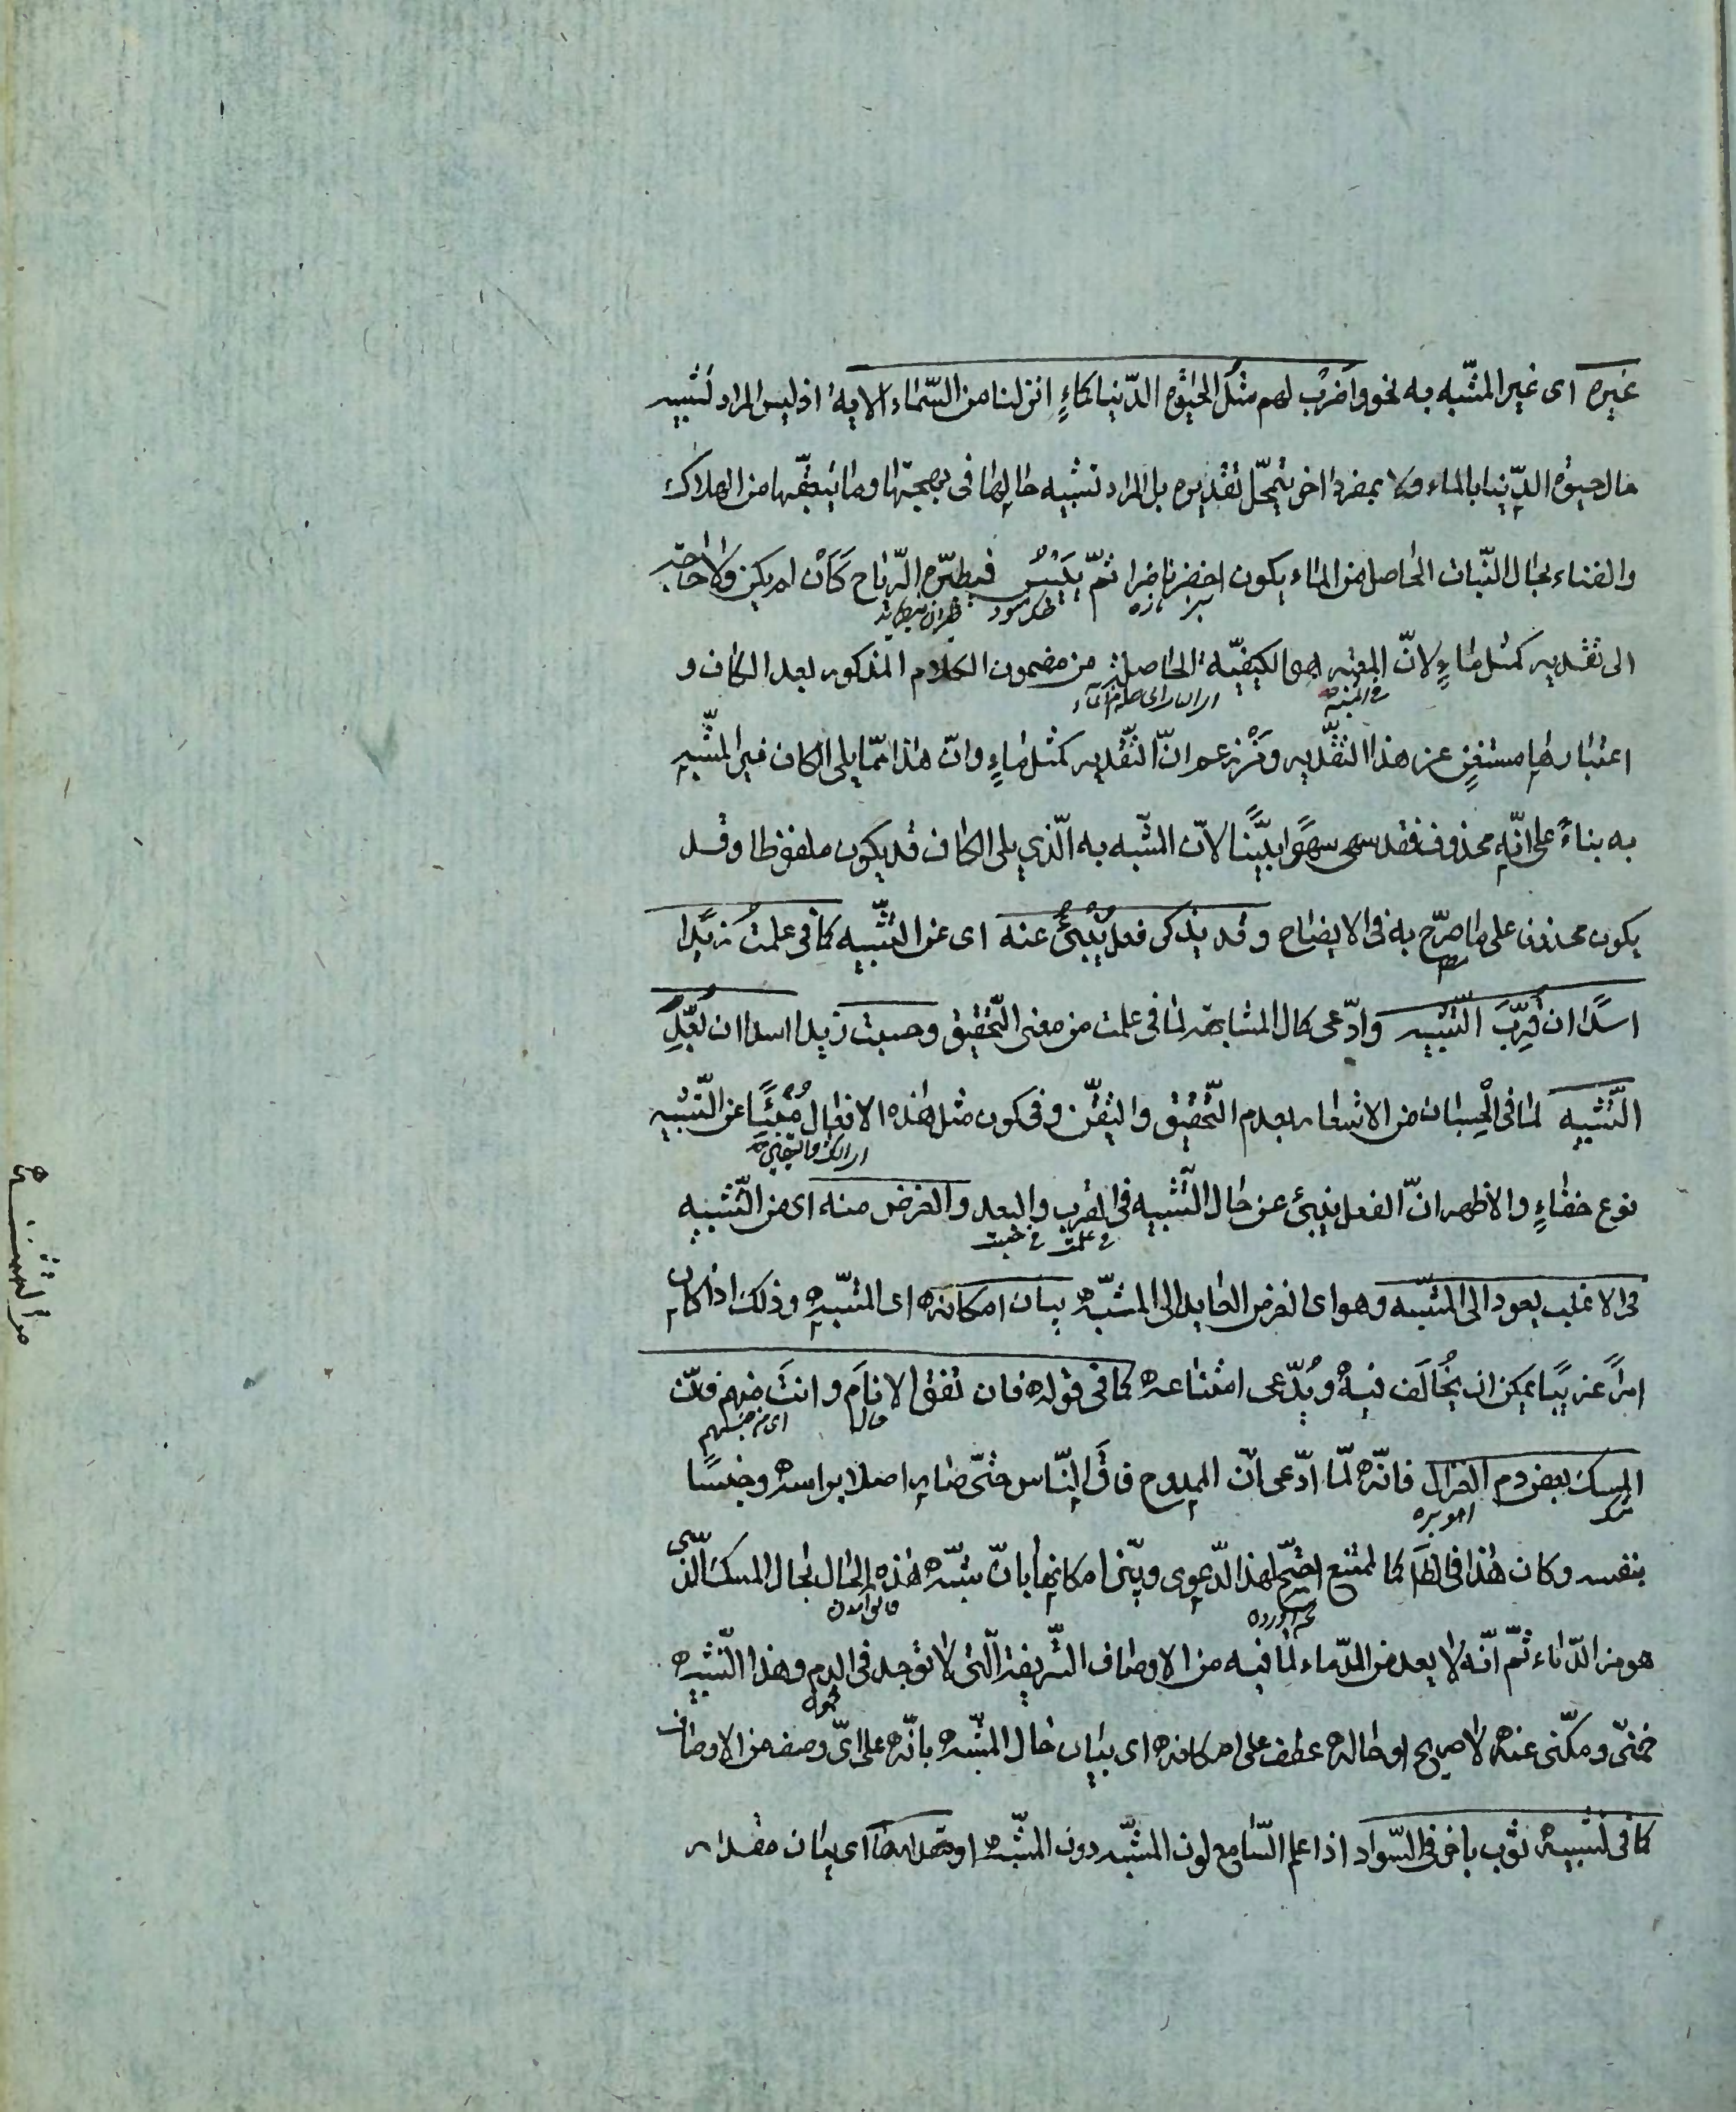 غيره اى غير المشبّه به نحو واضرب لهم مثل الحيٰوة الدّنيا كماءٍ انزلنا من السّماء الاية اذ ليس المراد تشبيه
حال حيوة الدّنيا بالماء ولا بمفرد اخر يتمحّل تقديره بل المراد تشبيه حالها فى بهجتها وما يتعقّبها من الهلاك
والفناء بحال النّبات الحاصل من الماء يكون اخضر ناضرا ثمّ ييبس فيطيّره الرّياح كَأَنْ لم يكن ولا حاجة
سبز تازه خشك شود
الى تقدير كمثل ماءٍ لانّ المعتبر هو الكيفيّة الحاصلة من مضمون الكلام المذكور بعد الكاف و
اعتبارها مستغنٍ عن هذا التقدير ومن زعم انّ التّقدير كمثل ماءٍ وانّ هذا ممّا يلى الكاف غير المشبّه
به بناءً على انّه محذوف فقد سهى سهوًا بيّنًا لانّ المشبّه به الّذي يلى الكاف قد يكون ملفوظا وقد
يكون محذوف على ما صرّح به فى الايضاح وقد يذكر فعل يُنْبِئُ عنه اى عن التشّبيه كما فى علمتُ زيدًا
اسدًا ان قرِّبَ التّشبيه وادّعى كمال المشابهة لما فى علمت من معنى التّحقيق وحسبت زيدا اسدا ان بُعِّد
التّشبيه لما فى الحِسبان من الاشعار بعدم التّحقيق والتيقّن وفى كون مثل هٰذه الافعال مُنْبِئًا عن التّشبيه
نوع خفاءٍ والاظهر انّ الفعل ينبئ عن حال التّشبيه فى القرب والبعد والغرض منه اى من التّشبيه
فى علمت فى حسبت
فى الاغلب يعود الى المشبّه وهو اى الغرض العايد الى المشبّه بيان امكانه اى المشبّه وذلك اذا كان
امرًا غريبًا يمكن ان يُخَالَف فيه ويُدّعى امتناعه كما فى قوله فان تفق الانامَ وانتَ منهم فانّ
حال اى من جنسهم
المسك بعض دم الغزال فانّه لمّا ادّعى انّ الممدوح فاق النّاس حتّى صار اصلا براسه وجنسًا
مشك اهو بره
بنفسه وكان هٰذا فى الظّاهر كالممتنع احتجّ لهذا الدّعوى وبيّن امكانها بانّ شبّه هٰذه الحال بحال المسك الّذى
هو من الدّماء ثمّ انّه لا يعد من الدّماء لما فيه من الاوصاف الشّريفة الّتى لا توجد فى الدم وهٰذا التّشبيه
ضمنىّ ومكنّى عنه لا صريح او حاله عطف على امكانه اى بيان حال المشبّه بانّه على اىّ وصف من الاوصاف
كما فى تشبيه ثوب باخر فى السّواد اذا علم السّامع لون المشبّه دون المشبّه او مقدارها اى بيان مقدار